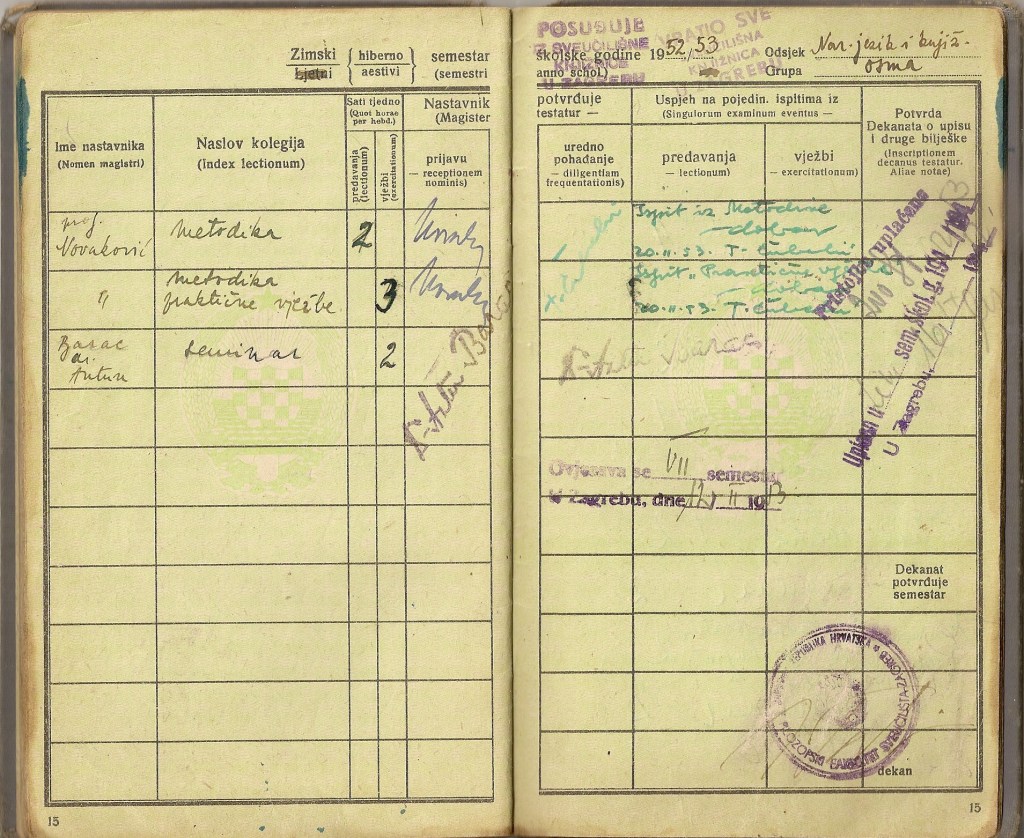 Zimski
Ljetni
hiberno
aestivi
semestar
(semestri
Ime nastavnika
(Nomen magistri)
Naslov kolegija
(Index lectionum)
Sati tjedno
(Quot horae
per hebd.)
predavanja
(lectionum)
vježbi
(exercitationum)
Nastavnik
(Magister
prijavu
— receptionem
nominis)
prof.
Novaković
metodika
2
"
metodika
praktične vježbe
3
Barac
dr.
Antun
seminar
2
15
POSUĐUJE
IZ SVEUČILIŠNE
KNJIŽNICE
U ZAGREBU
VRATIO SVE
SVEUČILIŠNA
KNJIŽNICA
U ZAGREBU
školske godine 1952/53
anno schol.)
Odsjek Nar. jezik i knjiž.
Grupa osma
potvrđuje
testatur —
uredno
pohađanje
— diligentiam
frequentationis)
Uspjeh na pojedin. ispitima iz
(Singulorum examinum eventus —
predavanja
— lectionum)
vježbi
— exercitationum)
Potvrda
Dekanata o upisu
i druge bilješke
(Inscriptionem
decanus testatur.
Aliae notae)
Ispit iz Metodike
dobar
20.II.53. T. Čubelić
Ispit
dobar
20.II.53. T. Čubelić
Antun Barac
Pristojba uplaćena
Upisan u sem. škol. g. 19
U Zagrebu,
Ovjerava se VII semestar
U Zagrebu, dne 12 II 1953
Dekanat
potvrđuje
semestar
REPUBLIKA HRVATSKA
FILOZOFSKI FAKULTET SVEUČILIŠTA ZAGREB
dekan
15